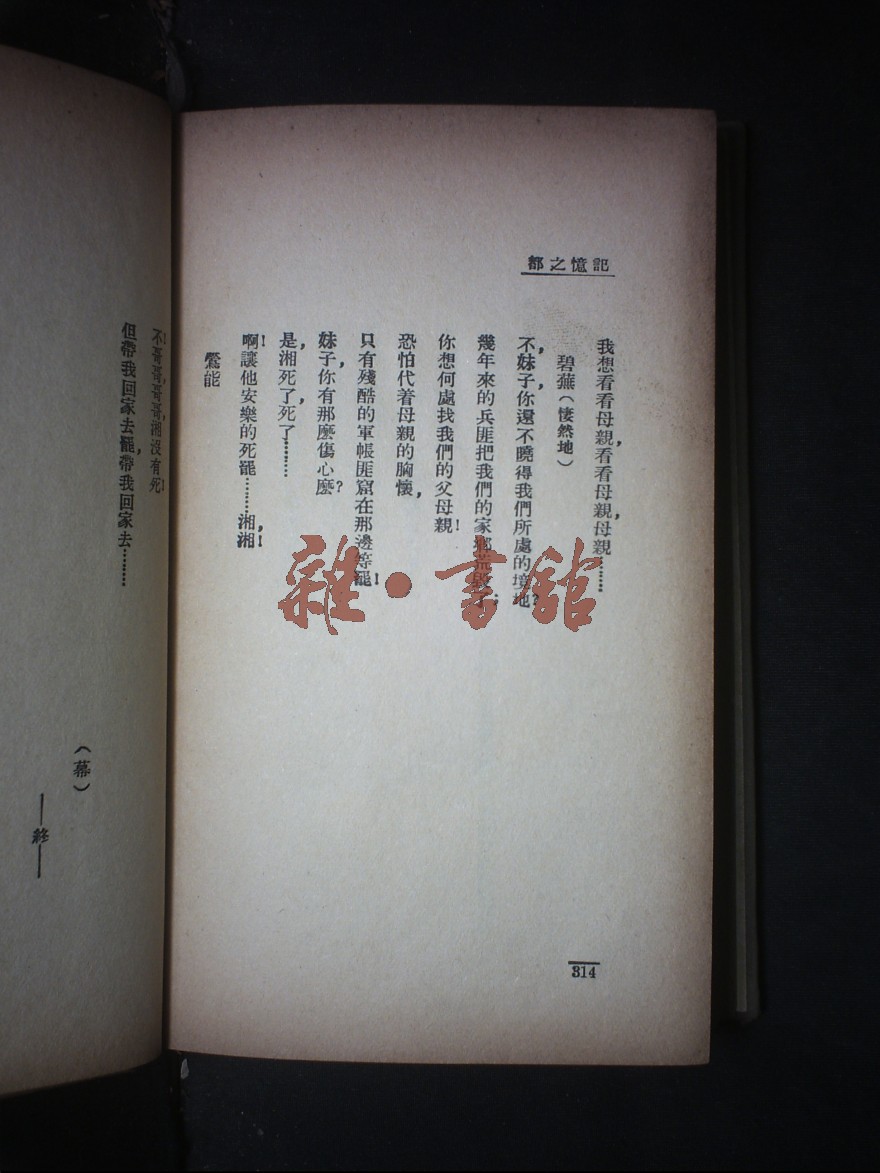 記憶之都
我想看看母親,看看母親,母親………
碧蕪(悽然地)
不,妹子,你還不曉得我們所處的境地?
幾年來的兵匪把我們的家鄉荒毀了;
你想何處找我們的父母親!
恐怕代着母親的胸懷,
只有殘酷的軍帳匪窟在那邊等罷!
妹子,你有那麽傷心麽?
是,湘死了,死了………
啊!讓他安樂的死罷………湘,湘!
能
314
不!哥哥,哥哥,湘沒有死!
但帶我回家去罷,帶我回家去………
(幕)
——終——
雜·書館